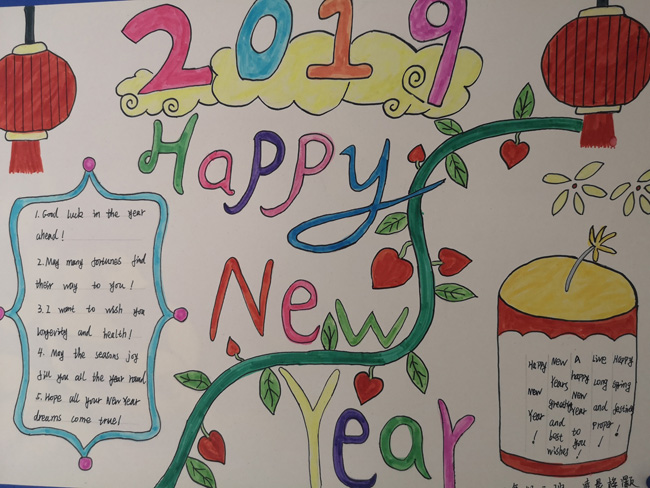 2019
Happy
New
Year
1. Good luck in the year
ahead!
2. May many fortunes find
their way to you!
3. I want to wish you
longevity and health!
4. May the seasons joy
fill you all the year round
5. Hope all your New Year
dreams come true!
Happy New A Live Happy
New Years happy long spring
Year greeting New and festival
! and Year proper !
best to !
wishes you
! !